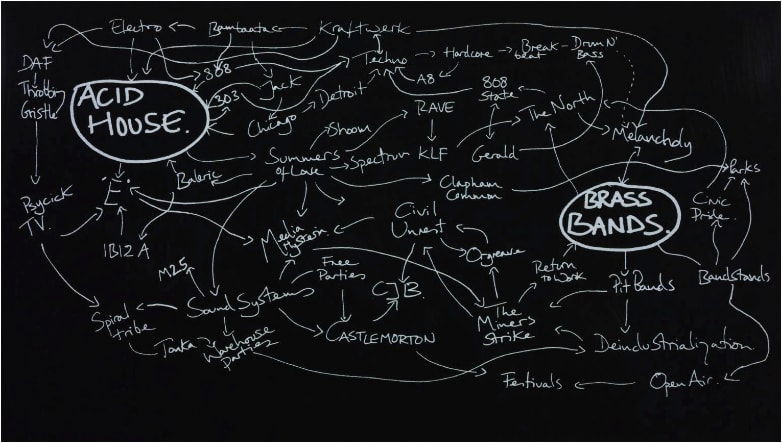 Electro
Bambaataa
Kraftwerk
DAF
Throbbin
Gristle
808
Techno
Hardcore
Break
beat
Drum N'
Bass
Jack
A8
303
ACID
HOUSE.
Detroit
808
State
Chicago
RAVE
The North
Shoom
Melancholy
Summers
of Love
Spectrum
KLF
Gerald
Parks
Baleric
"E"
Clapham
Common
Psycick
TV.
BRASS
BANDS.
Civic
Pride.
Civil
Unrest
IBIZA
Media
Hysteria
Orgreave
M25
Free
Parties
CJB.
Return
to Work
Pit Bands
Bandstands
Sound Systems
Spiral
tribe
The
Miners
Strike
CASTLEMORTON
Tonka
Warehouse
Parties
Deindustrialization.
Festivals
Open Air.